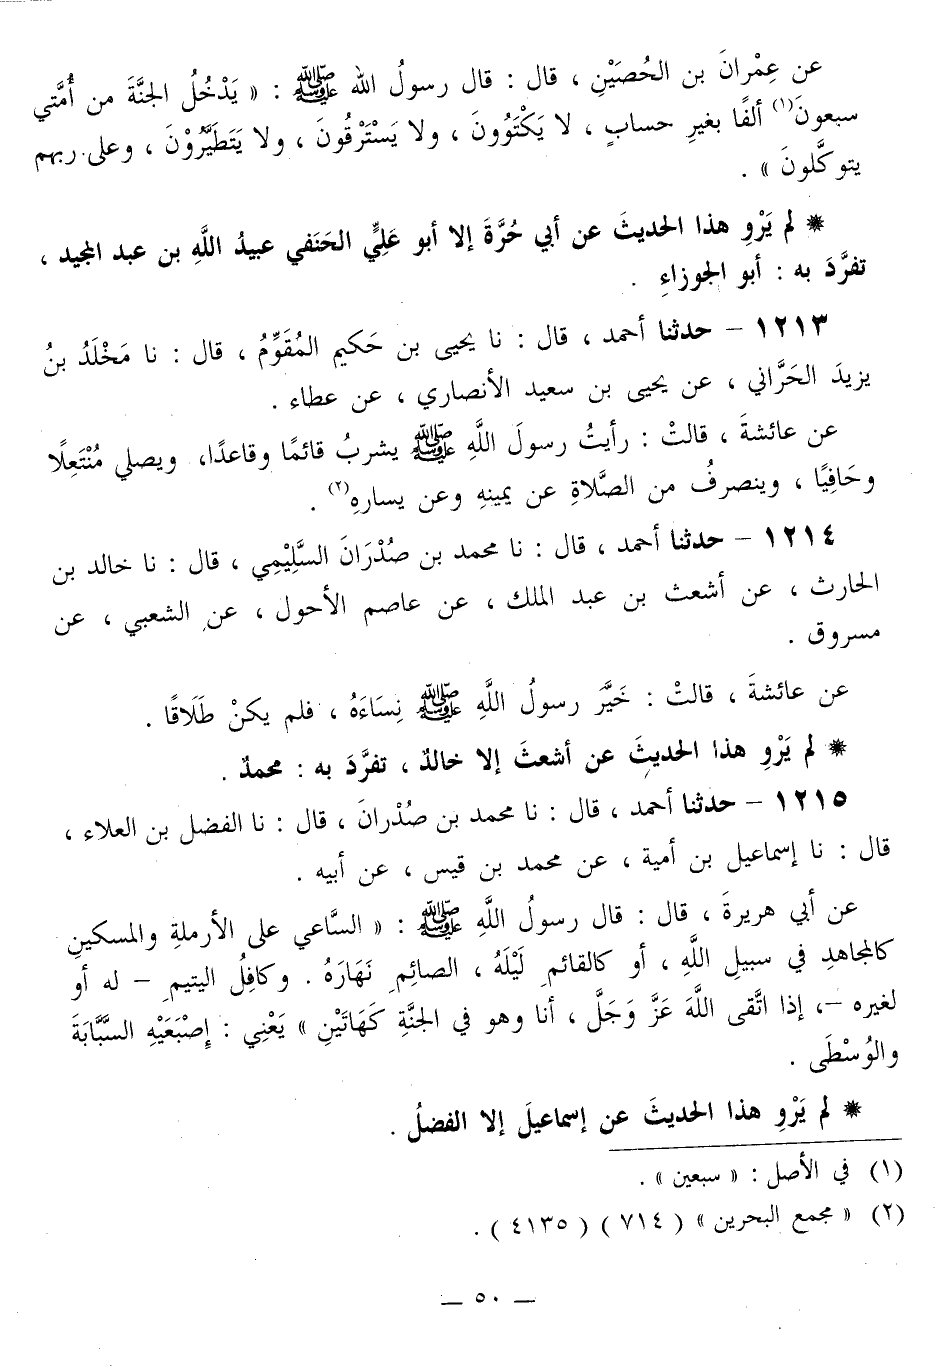 عن عِمْرانَ بن الحُصَيْنِ ، قال : قال رسولُ الله ﷺ : « يَدْخُلُ الجنَّةَ من أُمَّتي
سبعونَ(١) ألفًا بغيرِ حسابٍ ، لا يَكْتَوُونَ ، ولا يَسْتَرْقُونَ ، ولا يَتَطَيَّرُوْنَ ، وعلى ربهم
يتوكَّلونَ » .
* لم يَرْوِ هذا الحديثَ عن أبي حُرَّةَ إلا أبو عَلِيٍّ الحَنَفي عبيدُ اللَّهِ بن عبد المجيد ،
تفرَّدَ به : أبو الجوزاءِ .
١٢١٣ – حدثنا أحمد ، قال : نا يحيى بن حَكيم المُقَوِّمُ ، قال : نا مَخْلَدُ بنُ
يزيدَ الحَرَّاني ، عن يحيى بن سعيد الأنصاري ، عن عطاء .
عن عائشةَ ، قالتْ : رأيتُ رسولَ اللَّهِ ﷺ يشربُ قائمًا وقاعدًا، ويصلي مُنْتَعِلًا
وحَافِيًا ، وينصرفُ من الصَّلاةِ عن يمينهِ وعن يسارهِ(٢) .
١٢١٤ – حدثنا أحمد ، قال : نا محمد بن صُدْرَانَ السَّلِيْمِي ، قال : نا خالد بن
الحارث ، عن أشعث بن عبد الملك ، عن عاصم الأحول ، عن الشعبي ، عن
مسروق .
عن عائشةَ ، قالتْ : خَيَّرَ رسولُ اللَّهِ ﷺ نِسَاءَهُ ، فلم يكنْ طَلَاقًا .
* لم يَرْوِ هذا الحديثَ عن أشعثَ إلا خالدٌ ، تفرَّدَ به : محمدٌ .
١٢١٥ – حدثنا أحمد ، قال : نا محمد بن صُدْرانَ ، قال : نا الفضل بن العلاء ،
قال : نا إسماعيل بن أمية ، عن محمد بن قيس ، عن أبيه .
عن أبي هريرةَ ، قال : قال رسولُ اللَّهِ ﷺ : « السَّاعي على الأرملةِ والمسكينِ
كالمجاهدِ في سبيلِ اللَّهِ ، أو كالقائمِ لَيْلَهُ ، الصائمِ نَهَارَهُ . وكافِلُ اليتيمِ – له أو
لغيره –، إذا اتَّقى اللَّهَ عَزَّ وَجَلَّ ، أنا وهو في الجنَّةِ كَهَاتَيْنِ » يَعْنِي : إِصْبَعَيْهِ السَّبَّابَةَ
والوُسْطَى .
* لم يَرْوِ هذا الحديثَ عن إسماعيلَ إلا الفضلُ .
(١) في الأصل : « سبعين » .
(٢) « مجمع البحرين » ( ٧١٤ ) ( ٤١٣٥ ) .
– ٥٠ –